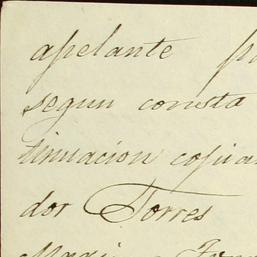 apelante
segun consta
tinuacion copia
dor Torres